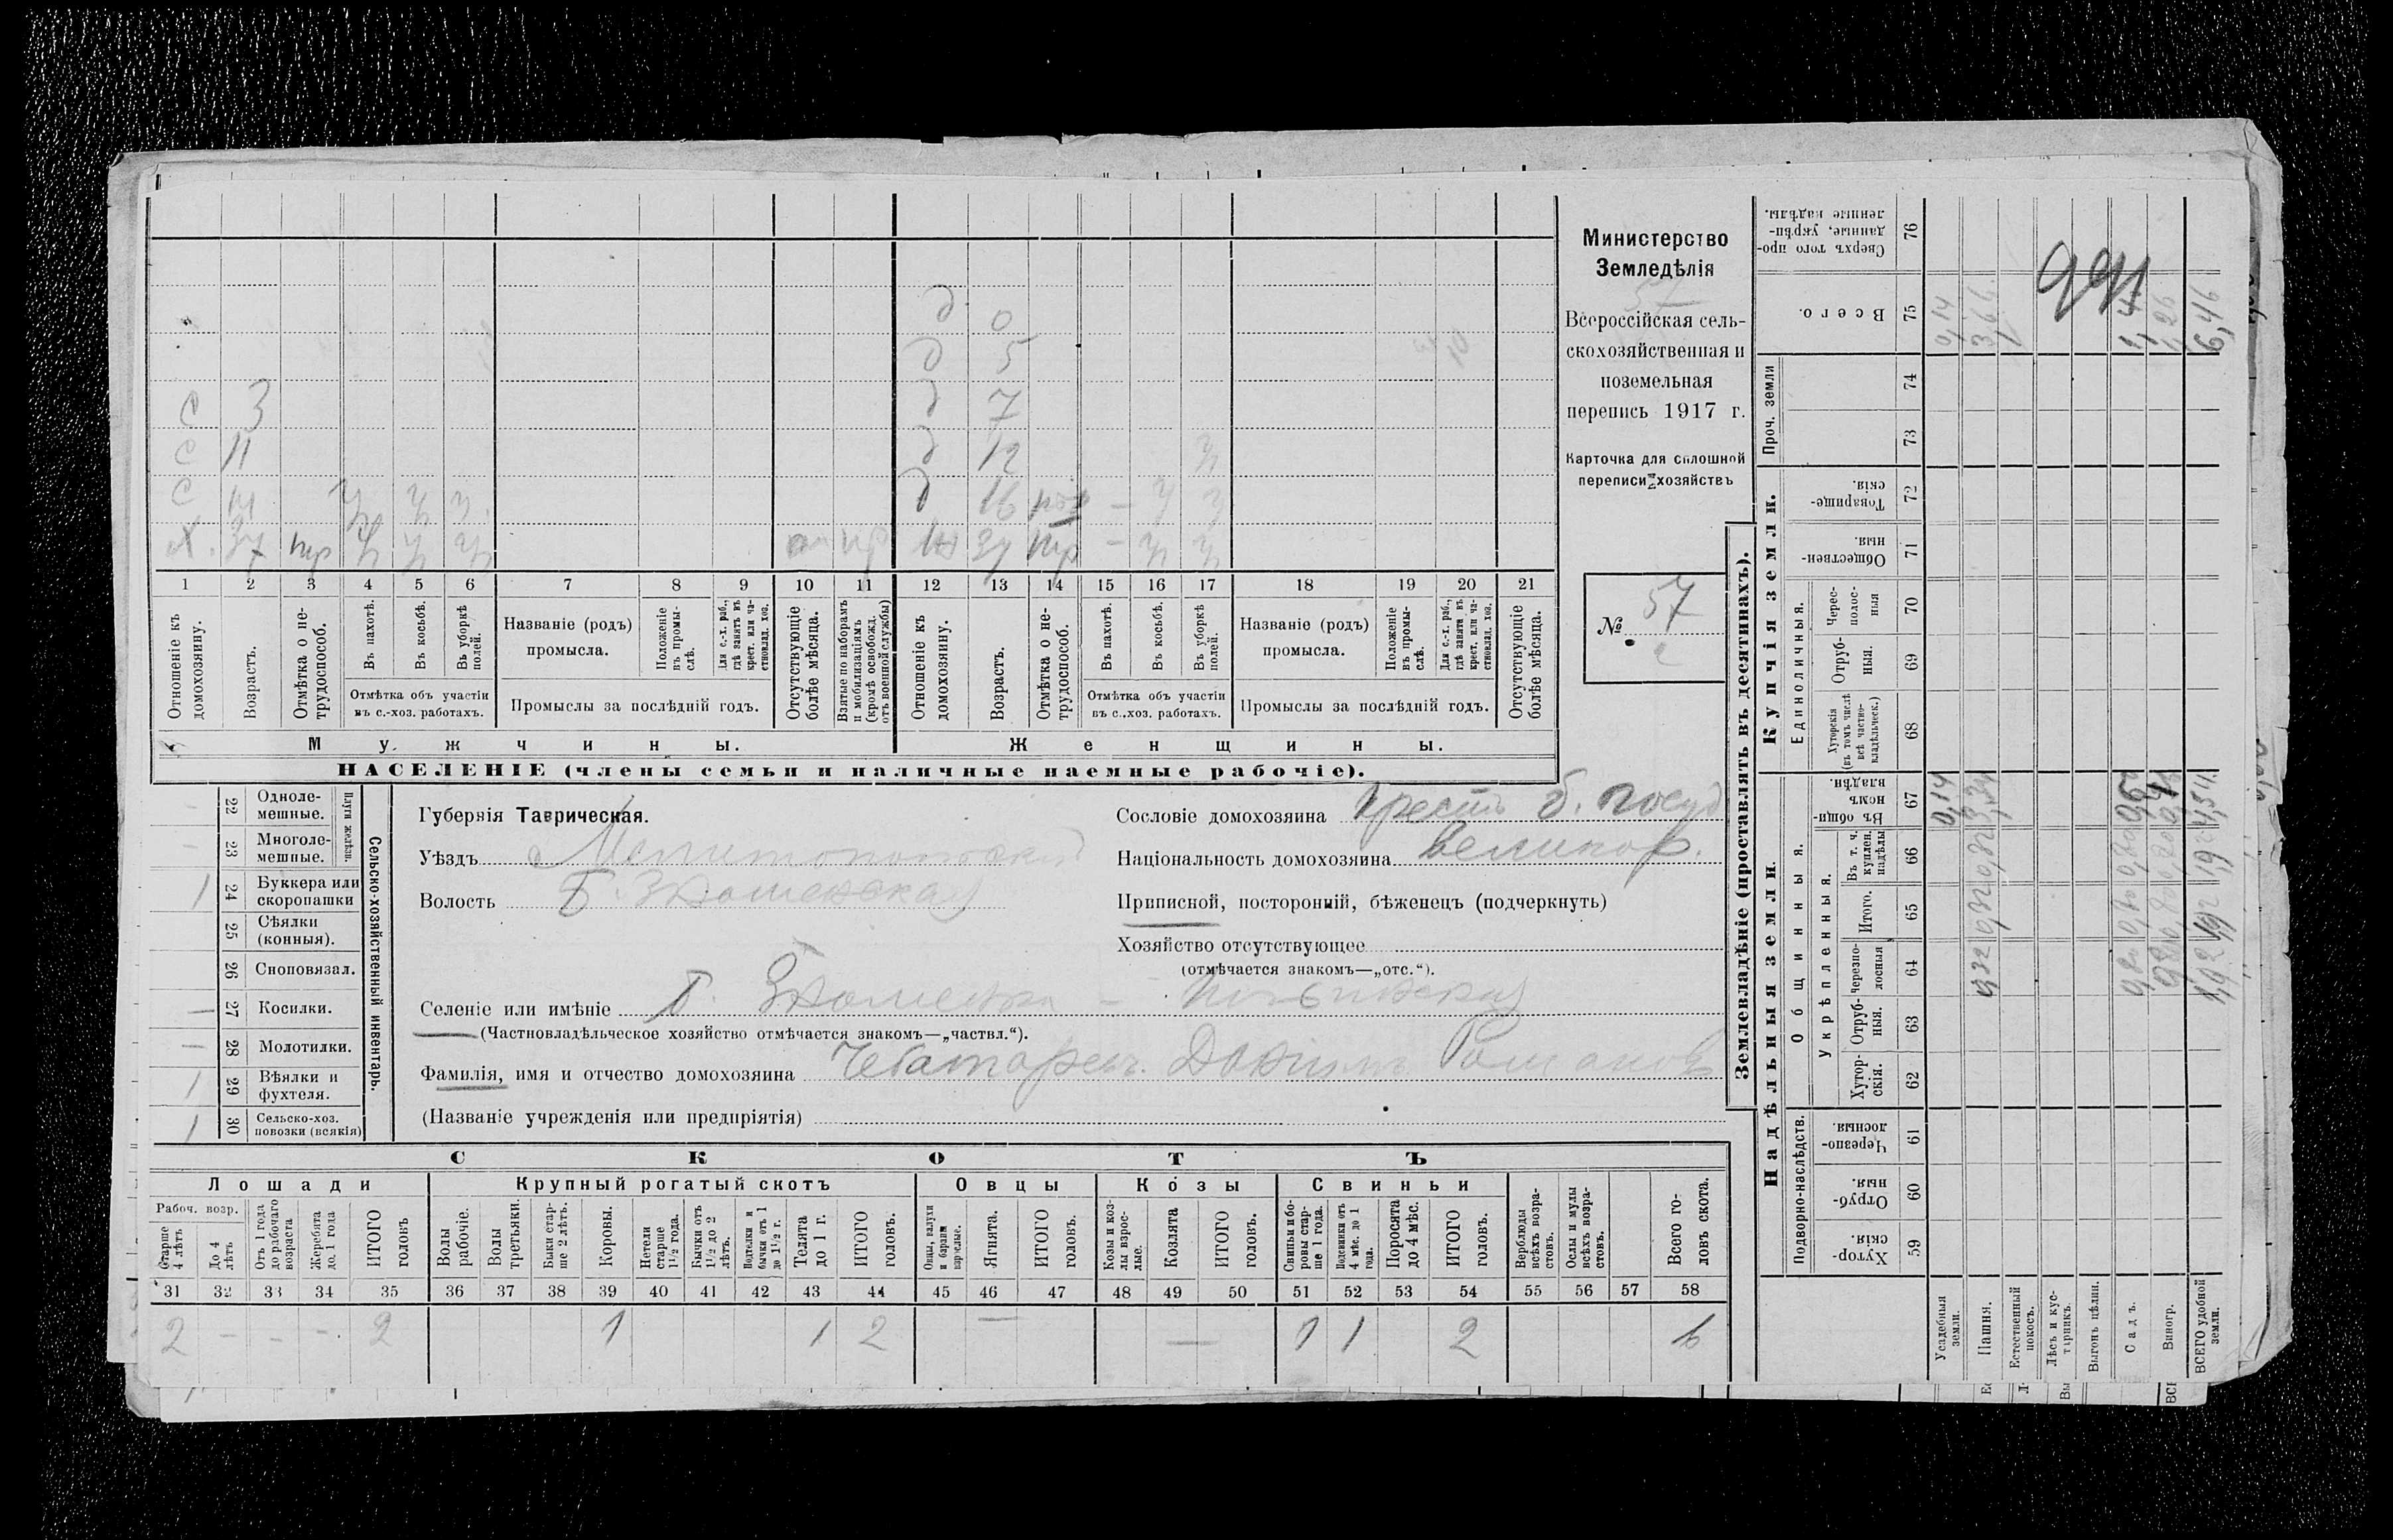 Министерство
Земледѣлія
Всероссійская сель-
скохозяйственная и
поземельная
перепись 1917 г.
Карточка для сплошной
переписи хозяйствъ
№ 57
2
д 0
д 5
с 3 д 7
с 11 д 12 у
с 14 у у у д 16 — у у
Х. 37 у у у 37 — у у
1 2 3 4 5 6 7 8 9 10 11 12 13 14 15 16 17 18 19 20 21
Отношеніе къ домохозяину.
Возрастъ.
Отмѣтка о не-трудоспособ.
Въ пахотѣ.
Въ косьбѣ.
Въ уборкѣ полей.
Отмѣтка объ участіи
въ с.-хоз. работахъ.
Названіе (родъ)
промысла.
Положеніе въ промы-слѣ.
Для с.-х. раб., гдѣ занятъ въ крест. или ча-стновлад. хоз.
Промыслы за послѣдній годъ.
Отсутствующіе болѣе мѣсяца.
Взятые по наборамъ и мобилизаціямъ (кромѣ освобожд. отъ военной службы)
Отношеніе къ домохозяину.
Возрастъ.
Отмѣтка о не-трудоспособ.
Въ пахотѣ.
Въ косьбѣ.
Въ уборкѣ полей.
Отмѣтка объ участіи
въ с.-хоз. работахъ.
Названіе (родъ)
промысла.
Положеніе въ промы-слѣ.
Для с.-х. раб., гдѣ занята въ крест. или ча-стновлад. хоз.
Промыслы за послѣдній годъ.
Отсутствующіе болѣе мѣсяца.
Мужчины. Женщины.
НАСЕЛЕНІЕ (члены семьи и наличные наемные рабочіе).
Сельско-хозяйственный инвентарь.
Плуги желѣзн.
— 22 Одноле-мешные.
— 23 Многоле-мешные.
1 24 Буккера или скоропашки
25 Сѣялки (конныя).
26 Сноповязал.
— 27 Косилки.
— 28 Молотилки.
1 29 Вѣялки и фухтеля.
1 30 Сельско-хоз. повозки (всякія)
Губернія Таврическая.
Уѣздъ Мелитопольскій
Волость Б. Знаменская
Селеніе или имѣніе Б. Знаменка —
(Частновладѣльческое хозяйство отмѣчается знакомъ—„частвл.“).
Фамилія, имя и отчество домохозяина
(Названіе учрежденія или предпріятія)
Сословіе домохозяина крест. б. госуд
Національность домохозяина великор.
Приписной, посторонній, бѣженецъ (подчеркнуть)
Хозяйство отсутствующее
(отмѣчается знакомъ—„отс.“).
СКОТЪ
Лошади Крупный рогатый скотъ Овцы Козы Свиньи
Рабоч. возр.
Старше 4 лѣтъ
До 4 лѣтъ
Отъ 1 года до рабочаго возраста
Жеребята до 1 года
ИТОГО головъ
Волы рабочіе.
Волы третьяки.
Быки стар-ше 2 лѣтъ.
Коровы.
Нетели старше 1½ года.
Бычки отъ 1½ до 2 лѣтъ.
Подтелки и бычки отъ 1 до 1½ г.
Телята до 1 г.
ИТОГО головъ.
Овцы, валухи и бараны взрослые.
Ягнята.
ИТОГО головъ.
Козы и коз-лы взрос-лые.
Козлята
ИТОГО головъ.
Свиньи и бо-ровы стар-ше 1 года.
Подсвинки отъ 4 мѣс. до 1 года.
Поросята до 4 мѣс.
ИТОГО головъ.
Верблюды всѣхъ возра-стовъ.
Ослы и мулы всѣхъ возра-стовъ.
Всего го-ловъ скота.
31 32 33 34 35 36 37 38 39 40 41 42 43 44 45 46 47 48 49 50 51 52 53 54 55 56 57 58
2 — — — 2 1 1 2 — — 1 1 2 6
Землевладѣніе (проставлять въ десятинахъ).
Надѣльныя земли. Купчія земли. Проч. земли
Подворно-наслѣдств.
Общинныя.
Укрѣпленныя.
Единоличныя.
59 Хутор-скія.
60 Отруб-ныя.
61 Черезпо-лосныя
62 Хутор-скія.
63 Отруб-ныя.
64 Черезпо-лосныя
65 Итого.
66 Въ т. ч. куплен. надѣлы
67 Въ общи-номъ владѣн.
68 Хуторскія (въ томъ числѣ всѣ частно-владѣльческ.)
69 Отруб-ныя.
70 Черес-полос-ныя
71 Обществен-ныя.
72 Товарище-скія.
73
74
75 Всего.
76 Сверхъ того про-данные, укрѣп-ленные надѣлы.
Усадебныя земли. 0,14 0,14
Пашня. 0,32 0,32 0,32 3,34 3,66
Естественный покосъ.
Лѣсъ и кус-тарникъ.
Выгонъ цѣлин.
Садъ. 0,80 0,80 0,80
Виногр. 0,80 0,80 0,80 1,26
ВСЕГО удобной земли. 1,92 1,92 1,92 4,54 6,46